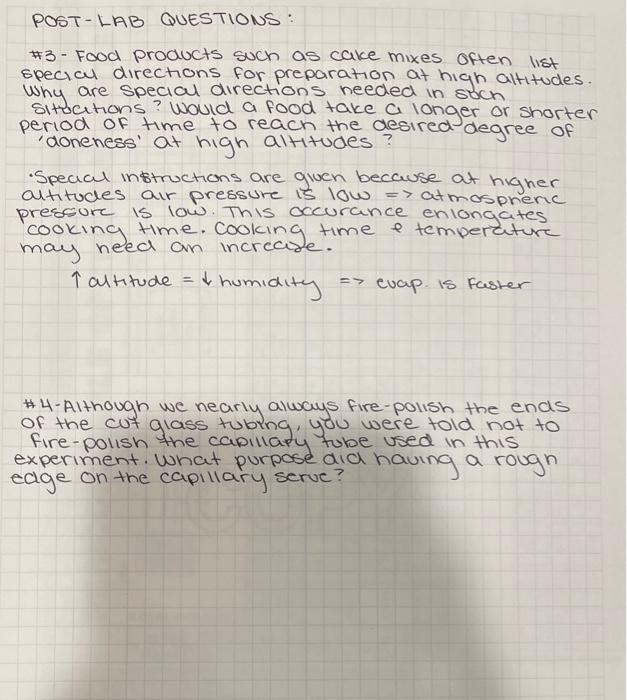 POST-LAB QUESTIONS:
#3 - Food products such as cake mixes often list
special directions for preparation at high altitudes.
Why are special directions needed in such
sitocations? Would a food take a longer or shorter
period of time to reach the desired degree of
'doneness' at high altitudes?
·Special instructions are given because at higher
altitudes air pressure is low => atmospheric
pressure is low. This occurance enlongates
cooking time. Cooking time & temperature
may need an increase.
↑ altitude = ↓ humidity => evap. is faster
#4-Although we nearly always fire-polish the ends
of the cut glass tubing, you were told not to
fire-polish the capillary tube used in this
experiment. What purpose did having a rough
edge on the capillary serve?